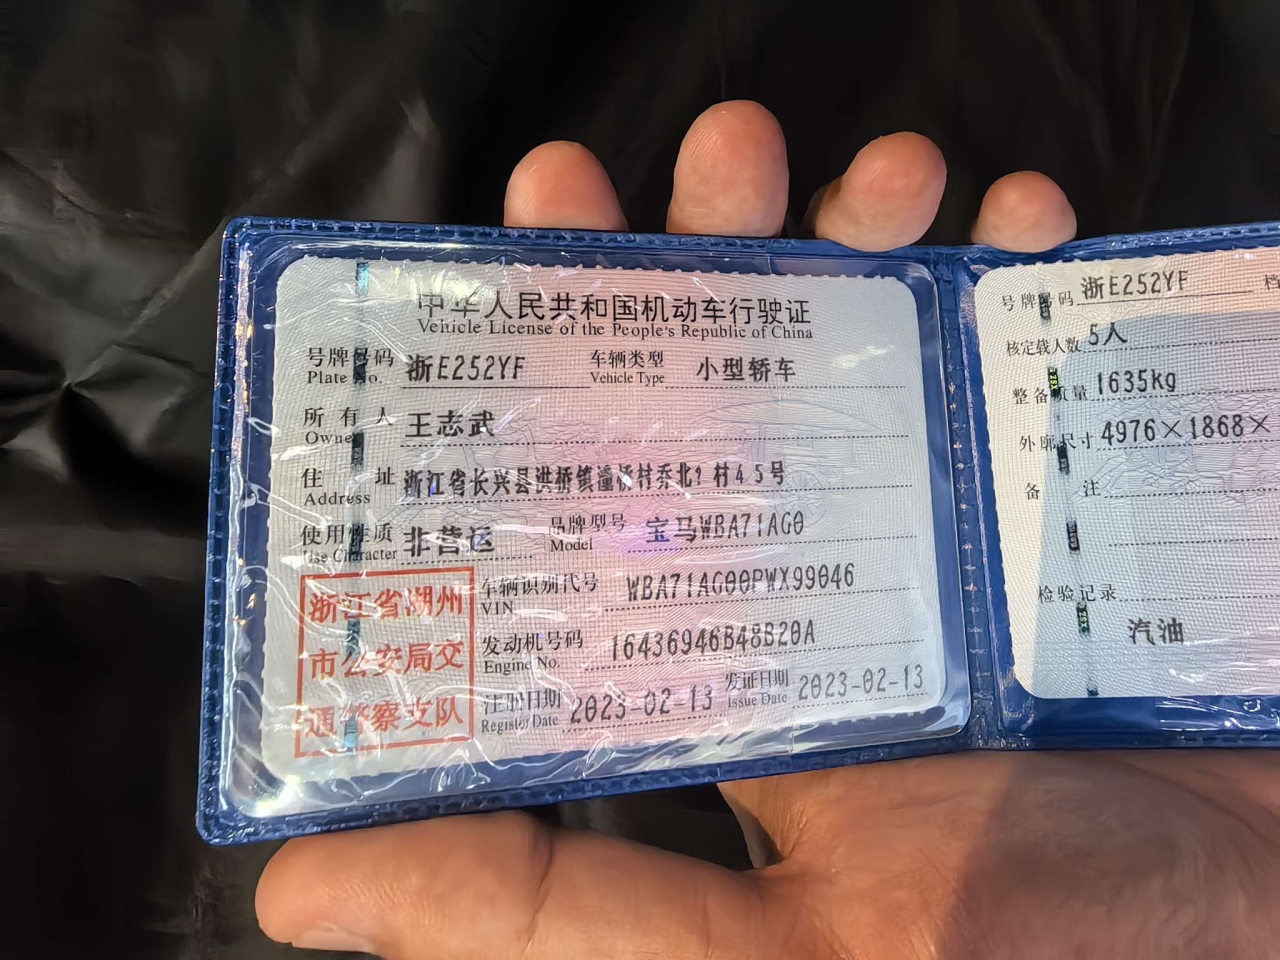 中华人民共和国机动车行驶证
Vehicle License of the People's Republic of China
号牌号码 浙E252YF 车辆类型 小型轿车
Plate No. Vehicle Type
所有人 王志武
Owner
住址 浙江省长兴县洪桥镇潼桥村乔北?村45号
Address
使用性质 非营运 品牌型号 宝马WBA71AG0
Use Character Model
浙江省湖州
市公安局交
通警察支队
车辆识别代号 WBA71AG00PWX99046
VIN
发动机号码 16436946B48B20A
Engine No.
注册日期 2023-02-13 发证日期 2023-02-13
Register Date Issue Date
号牌号码 浙E252YF 档
核定载人数 5人
整备质量 1635kg
外廓尺寸 4976×1868×
备注
检验记录
汽油